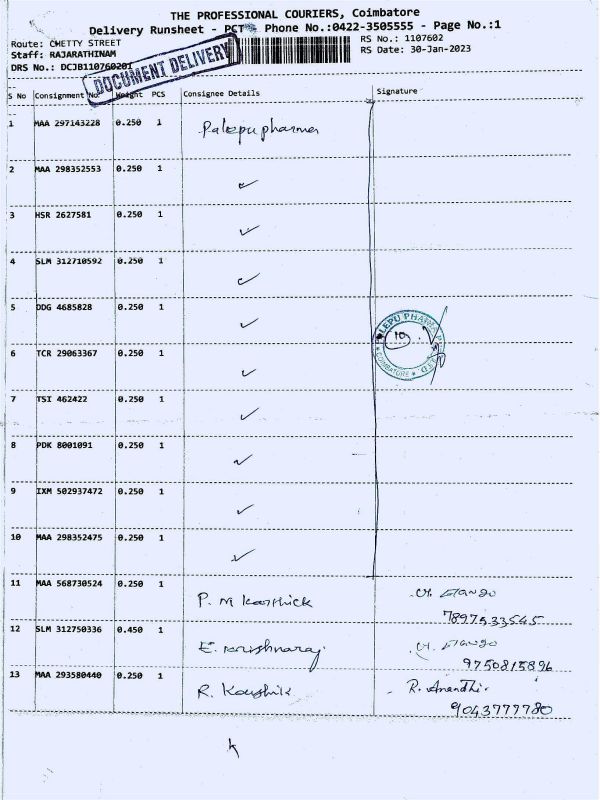 THE PROFESSIONAL COURIERS, Coimbatore
Delivery Runsheet - PCT - Phone No.:0422-3505555 - Page No.:1
Route: CHETTY STREET
RS No.: 1107602
Staff: RAJARATHINAM
RS Date: 30-Jan-2023
DRS No.: DCJB110760201
DOCUMENT DELIVERY
S No Consignment No. Weight PCS Consignee Details Signature
1 MAA 297143228 0.250 1 Palepu pharma
2 MAA 298352553 0.250 1 ✓
3 HSR 2627581 0.250 1 ✓
4 SLM 312710592 0.250 1 ✓
5 DDG 4685828 0.250 1 ✓
PALEPU PHARMA
COIMBATORE
6 TCR 29063367 0.250 1 ✓
7 TSI 462422 0.250 1 ✓
8 PDK 8001091 0.250 1 ✓
9 IXM 502937472 0.250 1 ✓
10 MAA 298352475 0.250 1 ✓
11 MAA 568730524 0.250 1 P. M Karthick
7897533545
12 SLM 312750336 0.450 1 E. Krishnaraj
9750815896
13 MAA 293580440 0.250 1 R. Kaushik R. Anandhi.
9043777780